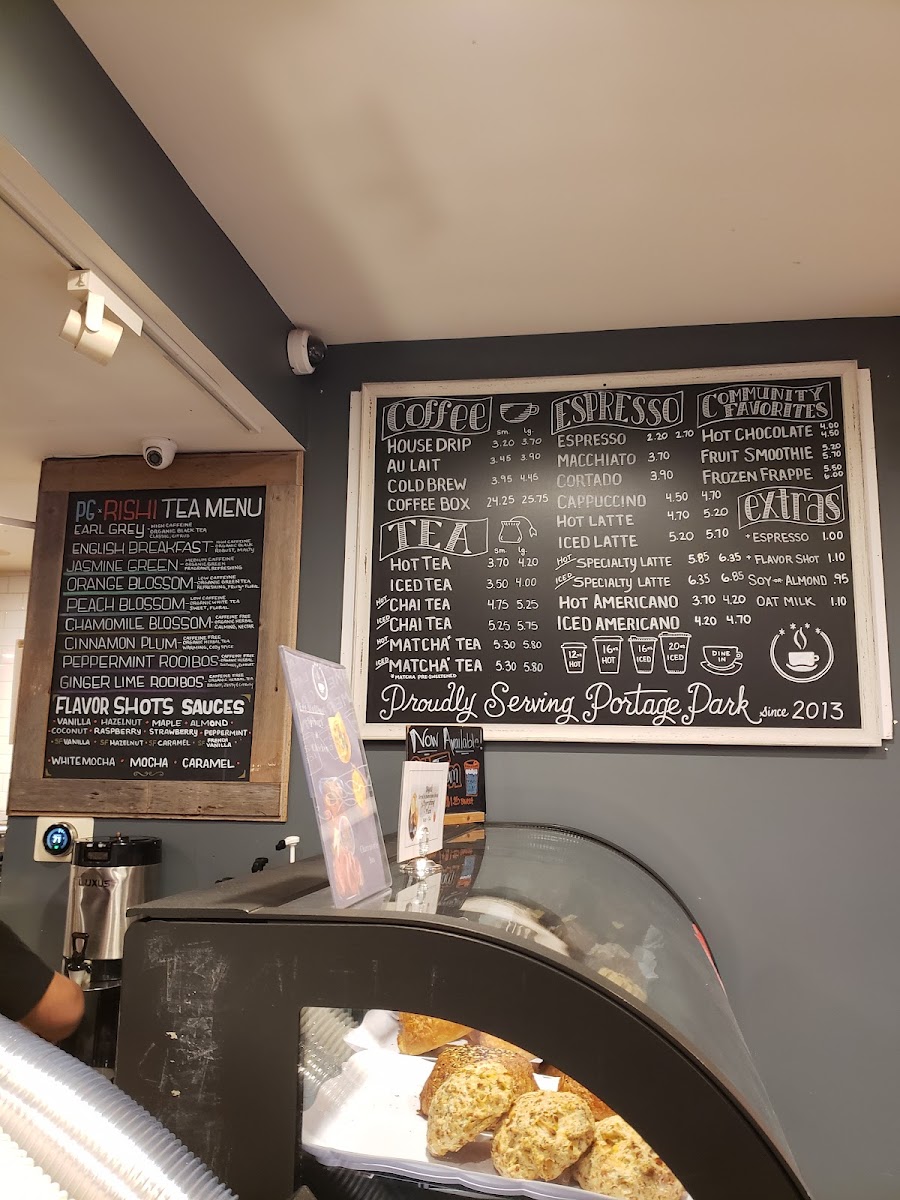 PG x RISHI TEA MENU
EARL GREY - HIGH CAFFEINE
ORGANIC BLACK TEA
CLASSIC, CITRUS
ENGLISH BREAKFAST - HIGH CAFFEINE
ORGANIC BLACK
ROBUST, MALTY
JASMINE GREEN - MEDIUM CAFFEINE
ORGANIC GREEN
FRAGRANT, REFRESHING
ORANGE BLOSSOM - LOW CAFFEINE
ORGANIC GREEN TEA
PEACH BLOSSOM - LOW CAFFEINE
ORGANIC WHITE TEA
SWEET, FLORAL
CHAMOMILE BLOSSOM - CAFFEINE FREE
ORGANIC HERBAL
CALMING, NECTAR
CINNAMON PLUM - CAFFEINE FREE
ORGANIC HERBAL TEA
PEPPERMINT ROOIBOS - CAFFEINE FREE
ORGANIC HERBAL
GINGER LIME ROOIBOS - CAFFEINE FREE
ORGANIC HERBAL TEA
FLAVOR SHOTS SAUCES
• VANILLA • HAZELNUT • MAPLE • ALMOND •
COCONUT • RASPBERRY • STRAWBERRY • PEPPERMINT •
• SF VANILLA • SF HAZELNUT • SF CARAMEL • SF FRENCH VANILLA
• WHITE MOCHA • MOCHA • CARAMEL •
COFFEE
sm. lg.
HOUSE DRIP 3.20 3.70
AU LAIT 3.45 3.90
COLD BREW 3.95 4.45
COFFEE BOX 24.25 25.75
TEA
sm. lg.
HOT TEA 3.70 4.20
ICED TEA 3.50 4.00
HOT CHAI TEA 4.75 5.25
ICED CHAI TEA 5.25 5.75
HOT MATCHA* TEA 5.30 5.80
ICED MATCHA* TEA 5.30 5.80
*MATCHA PRE-SWEETENED
ESPRESSO
ESPRESSO 2.20 2.70
MACCHIATO 3.70
CORTADO 3.90
CAPPUCCINO 4.50 4.70
HOT LATTE 4.70 5.20
ICED LATTE 5.20 5.70
HOT SPECIALTY LATTE 5.85 6.35
ICED SPECIALTY LATTE 6.35 6.85
HOT AMERICANO 3.70 4.20
ICED AMERICANO 4.20 4.70
12oz HOT
16oz HOT
16oz ICED
20oz ICED
DINE IN
COMMUNITY FAVORITES
HOT CHOCOLATE 4.00 4.50
FRUIT SMOOTHIE 5.20 5.70
FROZEN FRAPPE 5.50 6.00
extras
+ ESPRESSO 1.00
+ FLAVOR SHOT 1.10
SOY OR ALMOND .95
OAT MILK 1.10
Proudly Serving Portage Park since 2013
NOW Available
LUXUS